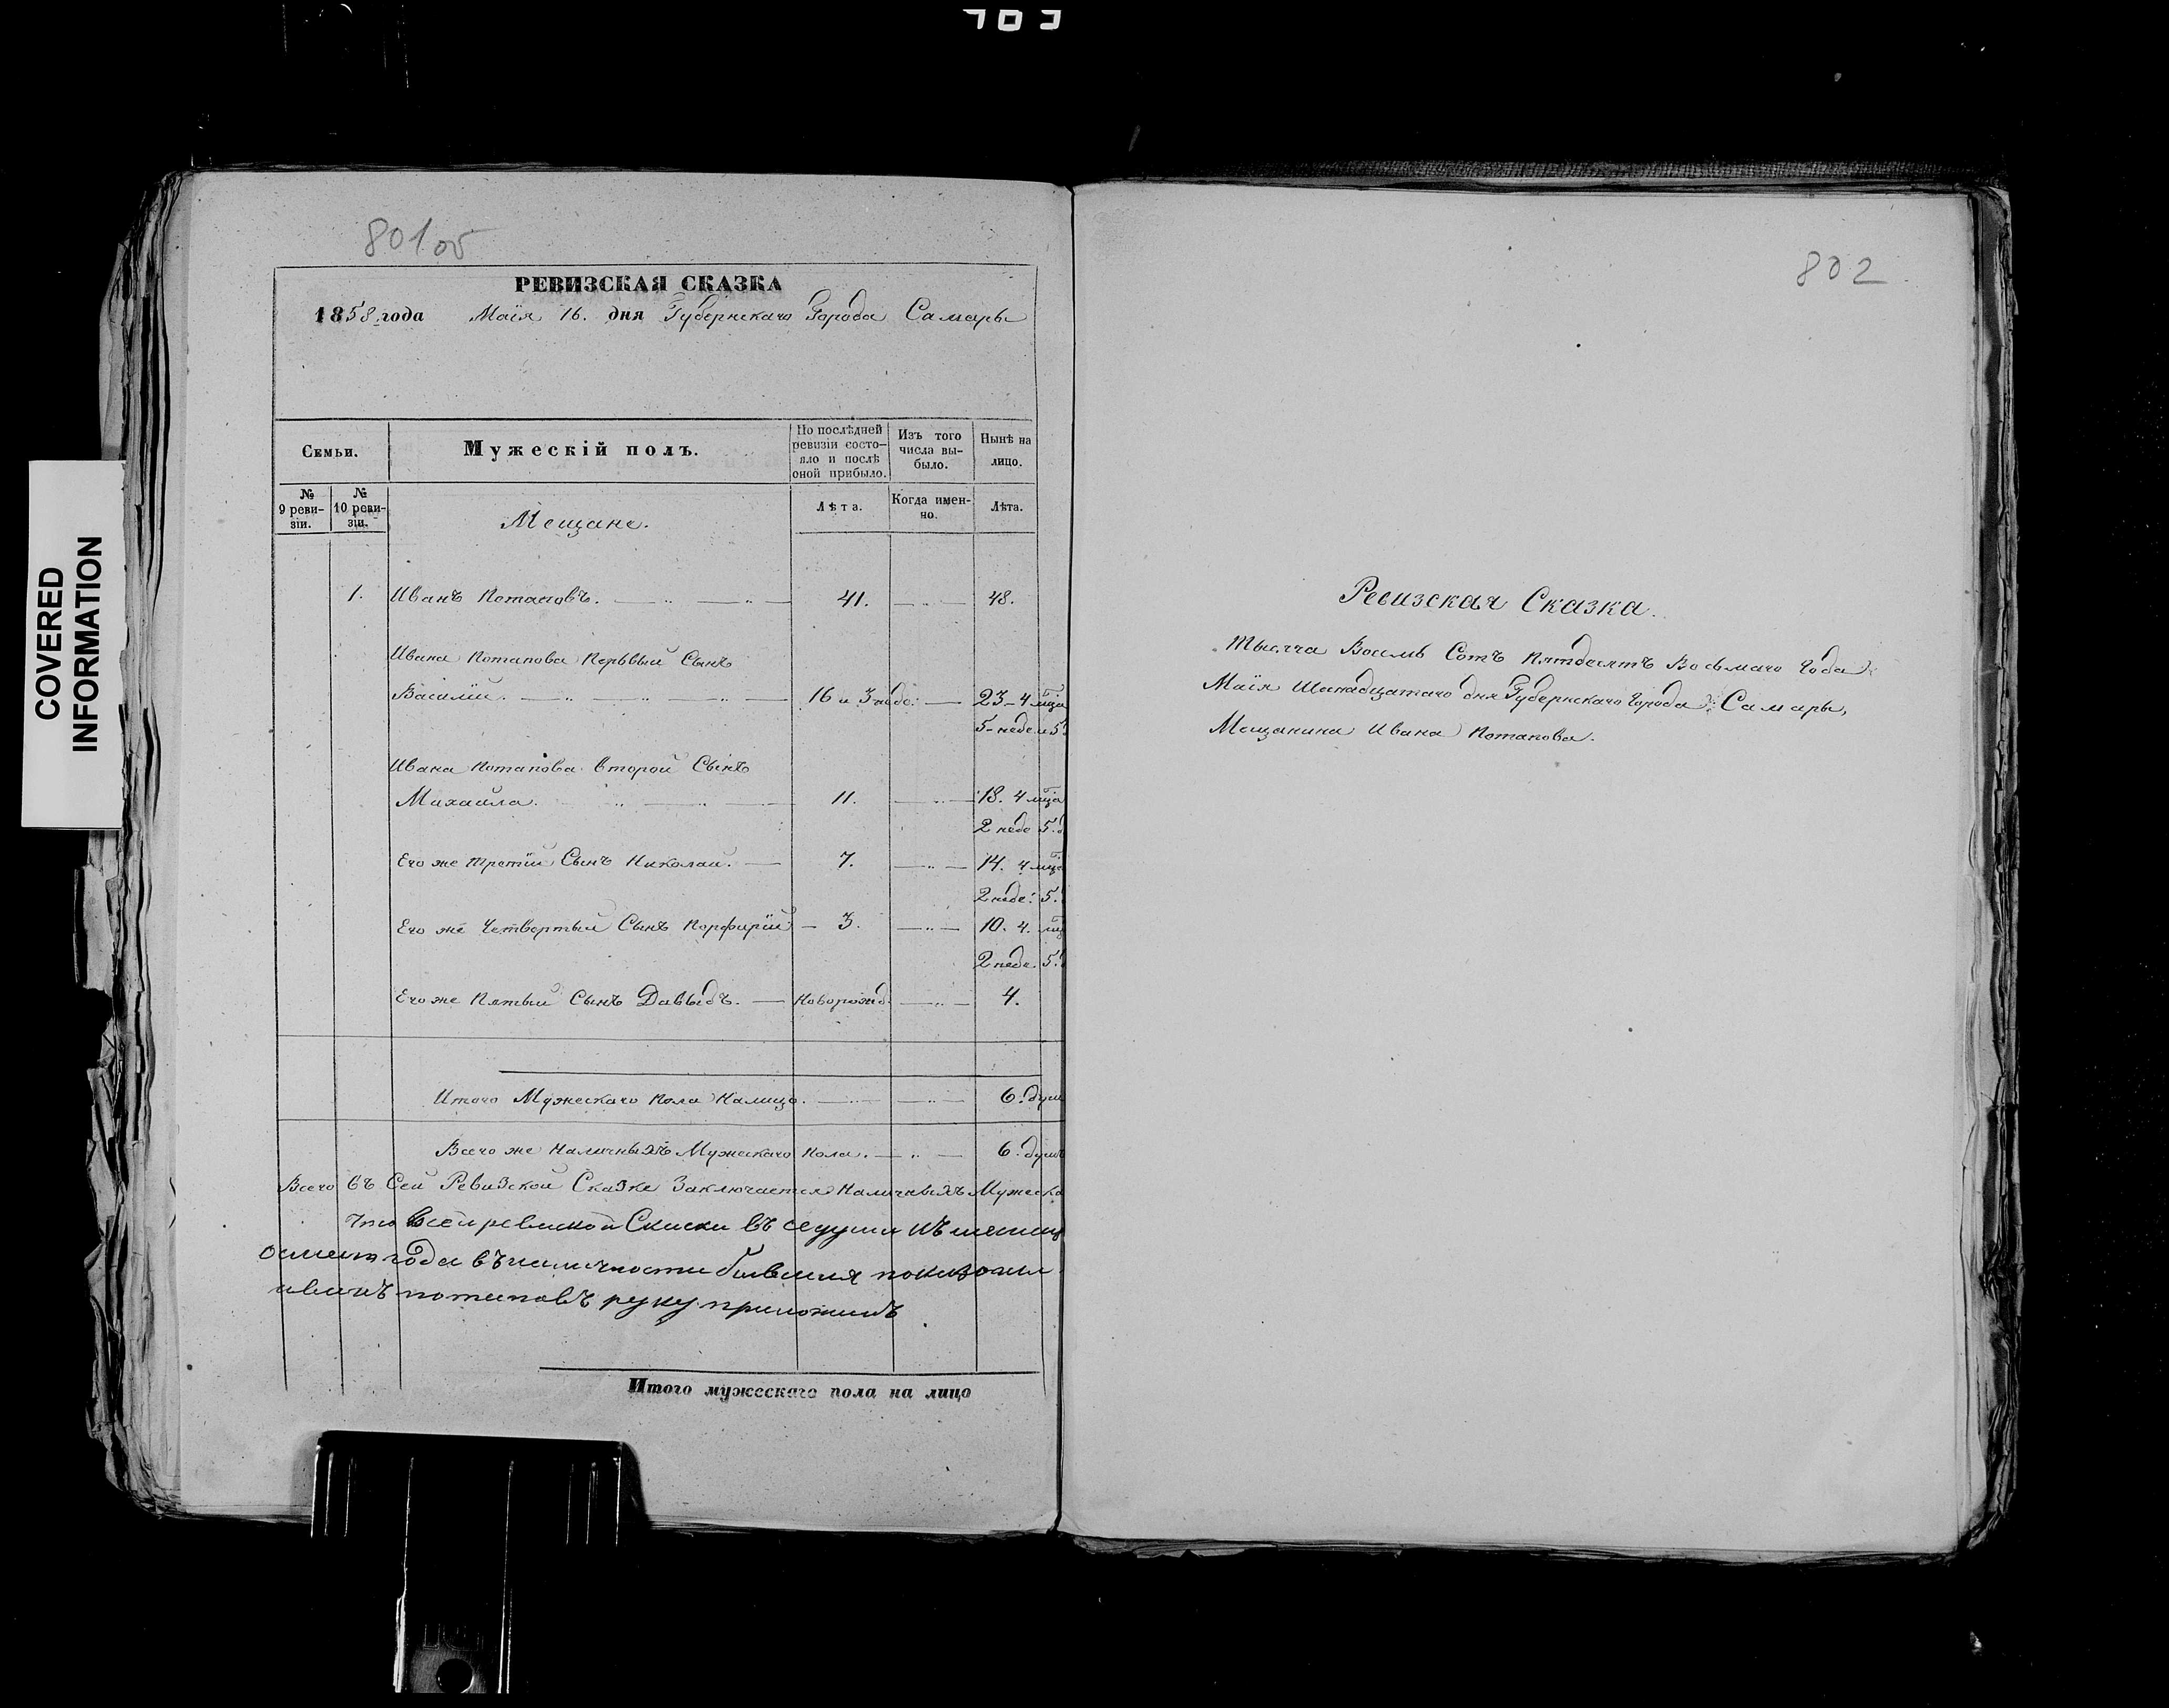 801об
РЕВИЗСКАЯ СКАЗКА
1858 года Маія 16. дня Губернскаго Города Самары
Семьи.
Мужескій полъ.
По послѣдней ревизіи состояло и послѣ оной прибыло.
Изъ того числа выбыло.
Нынѣ на лицо.
№ 9 ревизіи.
№ 10 ревизіи.
Мещане.
Лѣта.
Когда именно.
Лѣта.
1. Иванъ Потаповъ. 41. 48.
Ивана Потапова Перьвый Сынъ
Василій. 16 и 3 неде: 23-4 мца
5-недел 5
Ивана Потапова второй Сынъ
Михайла. 11. 18. 4 мца
2 неде 5.
Его же третій Сынъ Николай. 7. 14. 4 мца
2 неде: 5.
Его же Четвертый Сынъ Порфирій 3. 10. 4. мц
2 неде. 5.
Его же Пятый Сынъ Давыдъ. Новорожд. 4.
Итого Мужескаго Пола Налицо. 6. душ
Всего же Наличныхъ Мужескаго Пола. 6. душъ
Всего въ Сей Ревизской Сказке Заключается Наличныхъ Мужеска
что
года въ наличности показани
иванъ потаповъ руку приложилъ
Итого мужескаго пола на лицо
802
Ревизская Сказка.
Тысяча Восемь Сотъ Пятдесятъ Восьмаго Года
Маія Шатнадцатаго дня Губернскаго Города Самары,
Мещанина Ивана Потапова.
COVERED
INFORMATION